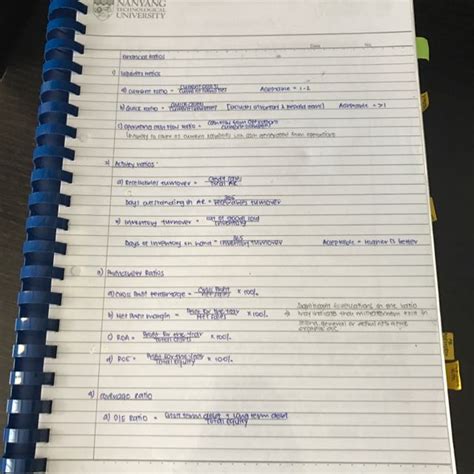 NANYANG
TECHNOLOGICAL
UNIVERSITY
Date No
Financial Ratios
1) Liquidity Ratios
a) Current ratio = Current assets / Current liabilities Acceptable = 1-2
b) Quick ratio = Quick assets / Current liabilities [Excludes inventory & prepaid Acceptable = >1
c) Operating cash flow ratio = Cash flow from operations / Current liabilities
Ability to cover its current liability with cash generated from operations
2) Activity Ratios
a) Receivables turnover = / Total AR
Days outstanding in AR = 365 / Receivables turnover
b) Inventory turnover = Cost of goods sold / Inventory
Days of inventory on hand = 365 / Inventory turnover Acceptable = Higher is better
3) Profitability Ratios
a) Gross profit percentage = Gross Profit / Net sales × 100%
b) Net profit margin = Profit for the year / Net sales × 100%
Significant fluctuations in the ratio
may indicate that misstatement exist in
c) ROA = Profit for the year / Total assets × 100%
d) ROE = Profit for the year / Total equity × 100%
4) Leverage ratio
a) D/E Ratio = Short term debt + Long term debt / Total equity